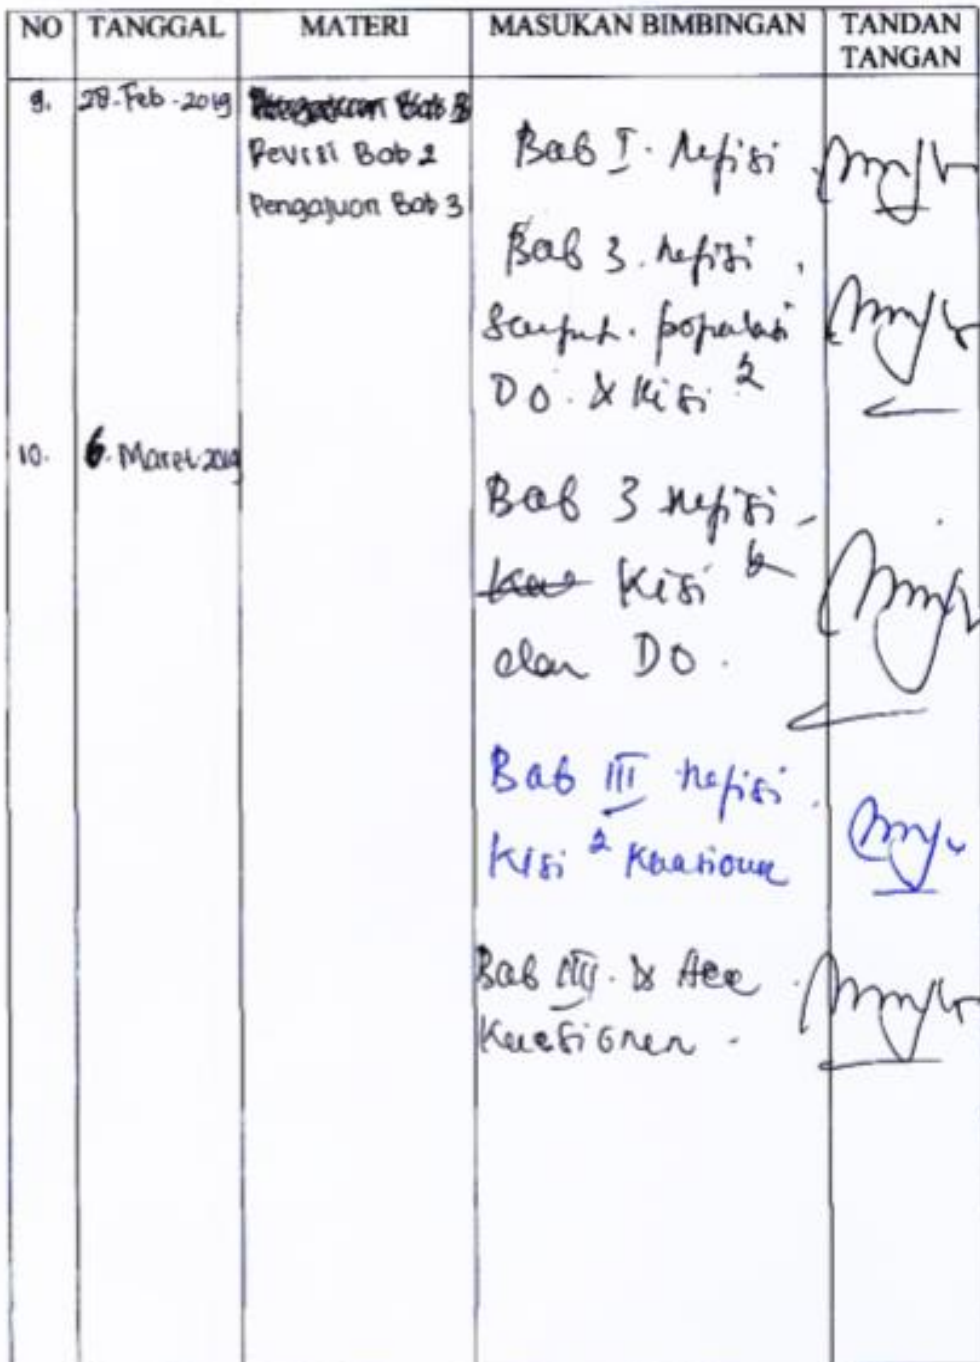 NO TANGGAL MATERI MASUKAN BIMBINGAN TANDAN TANGAN
9. 28-Feb-2019
Revisi Bab 2
Pengajuan Bab 3
Bab I. Refisi
Bab 3. Refisi.
populasi
DO. & Kisi 2
10. 6. Maret 2019
Bab 3 Refisi
Kisi
dan DO.
Bab III Refisi.
Kisi 2 Kuesioner
Bab III. Acc
Kuesioner.